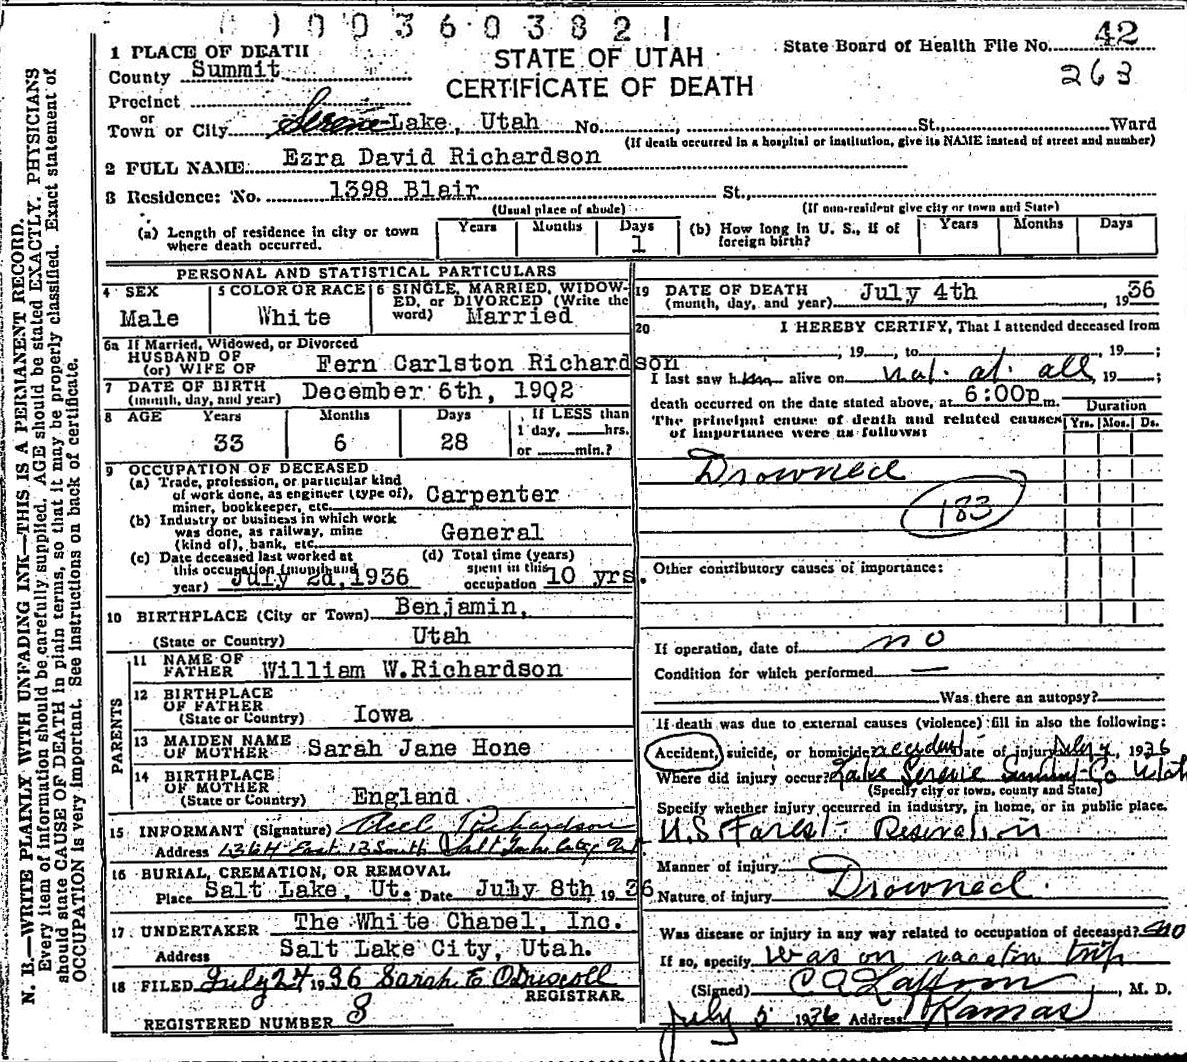 003603821
STATE OF UTAH
CERTIFICATE OF DEATH
State Board of Health File No. 42
263
1 PLACE OF DEATH
County Summit
Precinct
or
Town or City Serene Lake, Utah No. , St., Ward
(If death occurred in a hospital or institution, give its NAME instead of street and number)
2 FULL NAME Ezra David Richardson
3 Residence: No. 1398 Blair St.,
(Usual place of abude) (If non-resident give city or town and State)
(a) Length of residence in city or town where death occurred. Years Months Days 1
(b) How long in U. S., if of foreign birth? Years Months Days
PERSONAL AND STATISTICAL PARTICULARS
4 SEX Male
5 COLOR OR RACE White
6 SINGLE, MARRIED, WIDOWED, or DIVORCED (Write the word) Married
6a If Married, Widowed, or Divorced
HUSBAND OF
(or) WIFE OF Fern Carlston Richardson
7 DATE OF BIRTH
(month, day, and year) December 6th, 1902
8 AGE Years 33 Months 6 Days 28
If LESS than
1 day, hrs.
or min.?
9 OCCUPATION OF DECEASED
(a) Trade, profession, or particular kind of work done, as engineer (type of), miner, bookkeeper, etc. Carpenter
(b) Industry or business in which work was done, as railway, mine (kind of), bank, etc. General
(c) Date deceased last worked at this occupation (month and year) July 2d, 1936
(d) Total time (years) spent in this occupation 10 yrs.
10 BIRTHPLACE (City or Town) Benjamin,
(State or Country) Utah
PARENTS
11 NAME OF FATHER William W.Richardson
12 BIRTHPLACE OF FATHER
(State or Country) Iowa
13 MAIDEN NAME OF MOTHER Sarah Jane Hone
14 BIRTHPLACE OF MOTHER
(State or Country) England
15 INFORMANT (Signature) Richardson
Address 1364 East 13 South Salt Lake City Ut
16 BURIAL, CREMATION, OR REMOVAL
Place Salt Lake, Ut. Date July 8th 1936
17 UNDERTAKER The White Chapel, Inc.
Address Salt Lake City, Utah.
18 FILED July 24 1936 Sarah E O'Driscoll
REGISTRAR
REGISTERED NUMBER 3
19 DATE OF DEATH
(month, day, and year) July 4th , 1936
20 I HEREBY CERTIFY, That I attended deceased from
, 19 , to , 19 ;
I last saw him alive on not at all , 19 ;
death occurred on the date stated above, at 6:00p m.
The principal cause of death and related causes of importance were as follows:
Duration
Yrs. Mos. Ds.
Drowned
183
Other contributory causes of importance:
If operation, date of no
Condition for which performed —
Was there an autopsy?
If death was due to external causes (violence) fill in also the following:
Accident, suicide, or homicide accident Date of injury July 4, 1936
Where did injury occur? Lake Serene Summit Co Utah
(Specify city or town, county and State)
Specify whether injury occurred in industry, in home, or in public place.
U.S Forest Reservation
Manner of injury
Nature of injury Drowned.
Was disease or injury in any way related to occupation of deceased? no
If so, specify was on vacation trip
(Signed) , M. D.
July 5 1936 Address Kamas
N. B.—WRITE PLAINLY WITH UNFADING INK—THIS IS A PERMANENT RECORD.
Every item of information should be carefully supplied. AGE should be stated EXACTLY. PHYSICIANS
should state CAUSE OF DEATH in plain terms, so that it may be properly classified. Exact statement of
OCCUPATION is very important. See instructions on back of certificate.